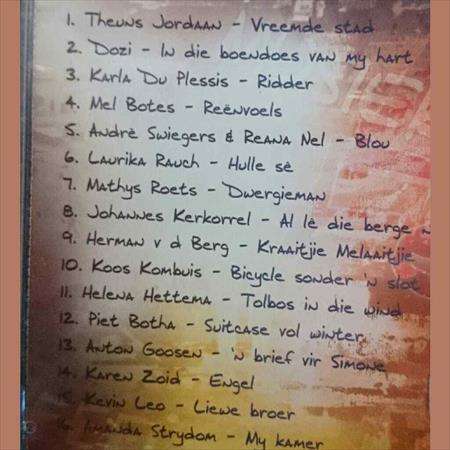 1. Theuns Jordaan - Vreemde stad
2. Dozi - In die boendoes van my hart
3. Karla Du Plessis - Ridder
4. Mel Botes - Reënvoels
5. Andrè Swiegers & Reana Nel - Blou
6. Laurika Rauch - Hulle sê
7. Mathys Roets - Dwergieman
8. Johannes Kerkorrel - Al lê die berge
9. Herman v d Berg - Kraaitjie Melaaitjie
10. Koos Kombuis - Bicycle sonder 'n slot
11. Helena Hettema - Tolbos in die wind
12. Piet Botha - Suitcase vol winter
13. Anton Goosen - 'n brief vir Simone
14. Karen Zoid - Engel
15. Kevin Leo - Liewe broer
16. Amanda Strydom - My kamer